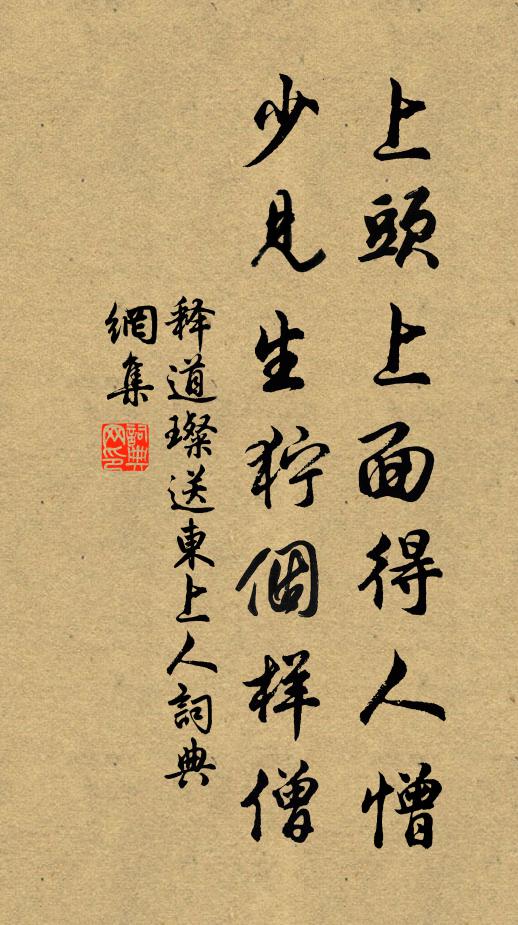 上頭上面得人憎
少見生狞個样僧
释道璨送東上人詞典
網集
詞典网印